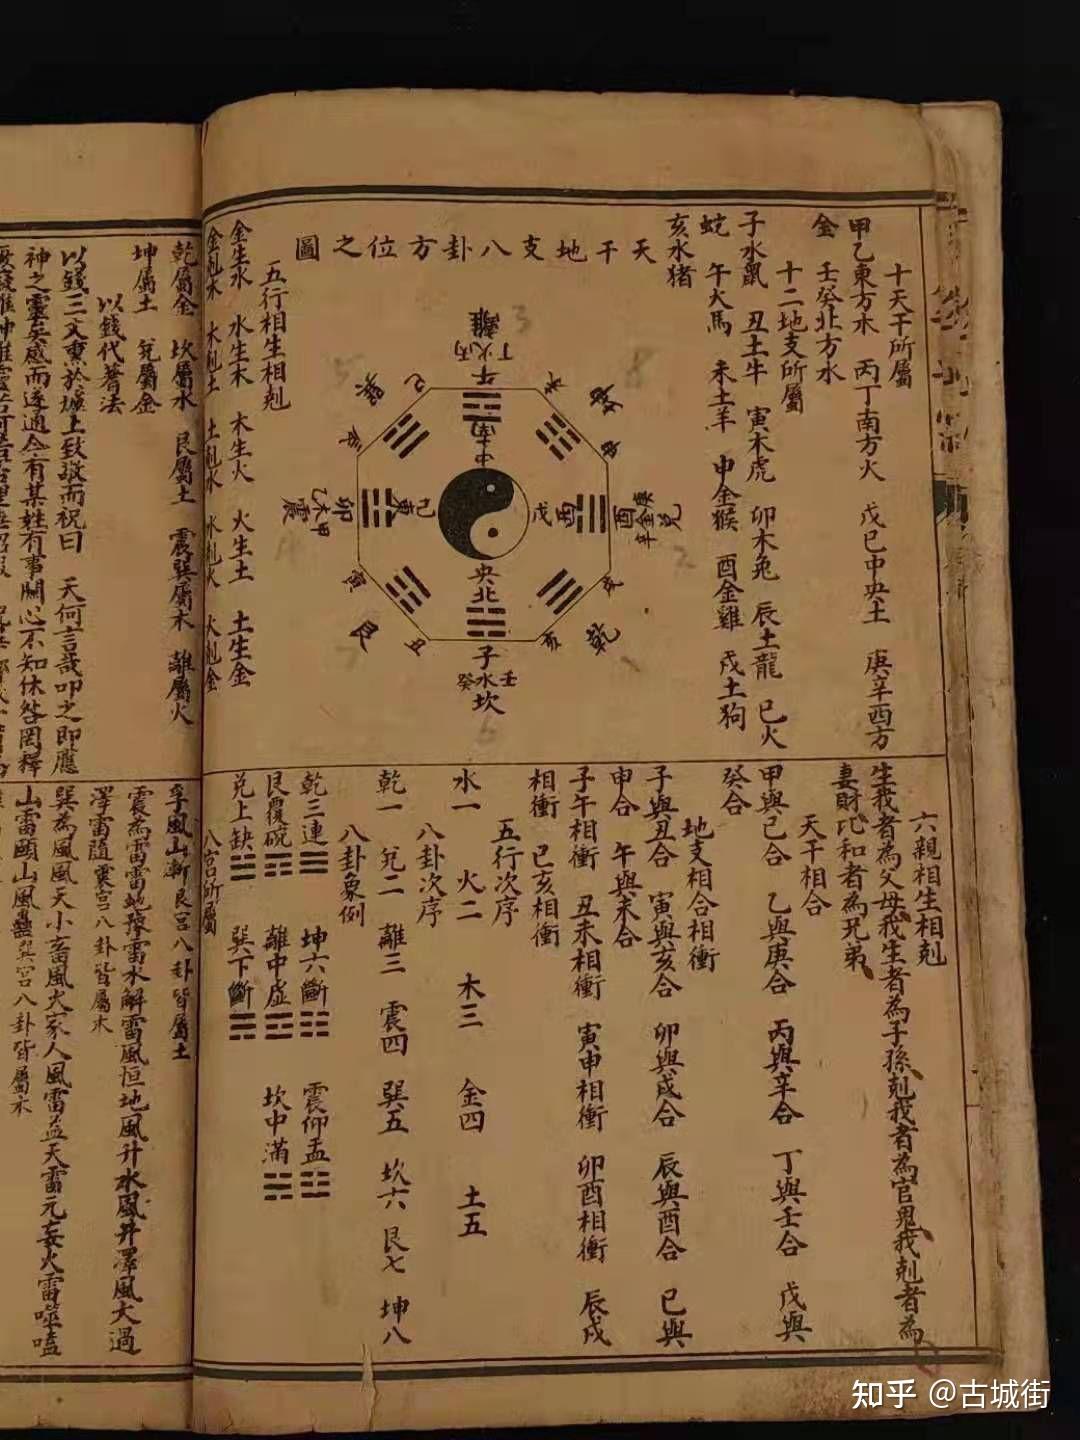 十天干所屬
甲乙東方木　丙丁南方火　戊己中央土　庚辛西方
金　壬癸北方水
十二地支所屬
子水鼠　丑土牛　寅木虎　卯木兔　辰土龍　巳火
蛇　午火馬　未土羊　申金猴　酉金雞　戌土狗
亥水猪
天干地支八卦方位之圖
離
丁火丙
午
南
中
巽
巳
未
坤
申
辰
甲木乙
震
卯
東
己
戊
酉
酉
庚金辛
兌
寅
艮
丑
央
北
子
癸水壬
坎
戌
乾
亥
五行相生相剋
金生水　水生木　木生火　火生土　土生金
金剋木　木剋土　土剋水　水剋火　火剋金
六親相生相剋
生我者為父母我生者為子孫剋我者為官鬼我剋者為
妻財比和者為兄弟
天干相合
甲與己合　乙與庚合　丙與辛合　丁與壬合　戊與
癸合
地支相合相衝
子與丑合　寅與亥合　卯與戌合　辰與酉合　巳與
申合　午與未合
子午相衝　丑未相衝　寅申相衝　卯酉相衝　辰戌
相衝　巳亥相衝
五行次序
水一　火二　木三　金四　土五
八卦次序
乾一　兌二　離三　震四　巽五　坎六　艮七　坤八
八卦象例
乾三連☰　坤六斷☷　震仰盂☳
艮覆碗☶　離中虛☲　坎中滿☵
兌上缺☱　巽下斷☴
八宮所屬
乾屬金　坎屬水　艮屬土　震巽屬木　離屬火
坤屬土　兌屬金
以錢代蓍法
以錢三文熏於爐上致敬而祝曰　天何言哉叩之即應
神之靈矣感而遂通今有某姓有事關心不知休咎罔釋
孚風山漸艮宮八卦皆屬土
震為雷雷地豫雷水解雷風恒地風升水風井澤風大過
澤雷隨震宮八卦皆屬木
巽為風風天小畜風火家人風雷益天雷无妄火雷噬嗑
山雷頤山風蠱巽宮八卦皆屬木
知乎 @古城街